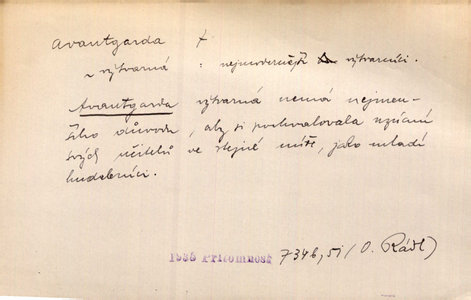 avantgarda f
~ výtvarná : nejmodernější výtvarníci.
Avantgarda výtvarná nemá nejmen-
šího důvodu, aby si pochvalovala uznání
svých učitelů ve stejné míře, jako mladí
hudebníci.
1936 Přítomnost 7346, 51 (O. Rádl)